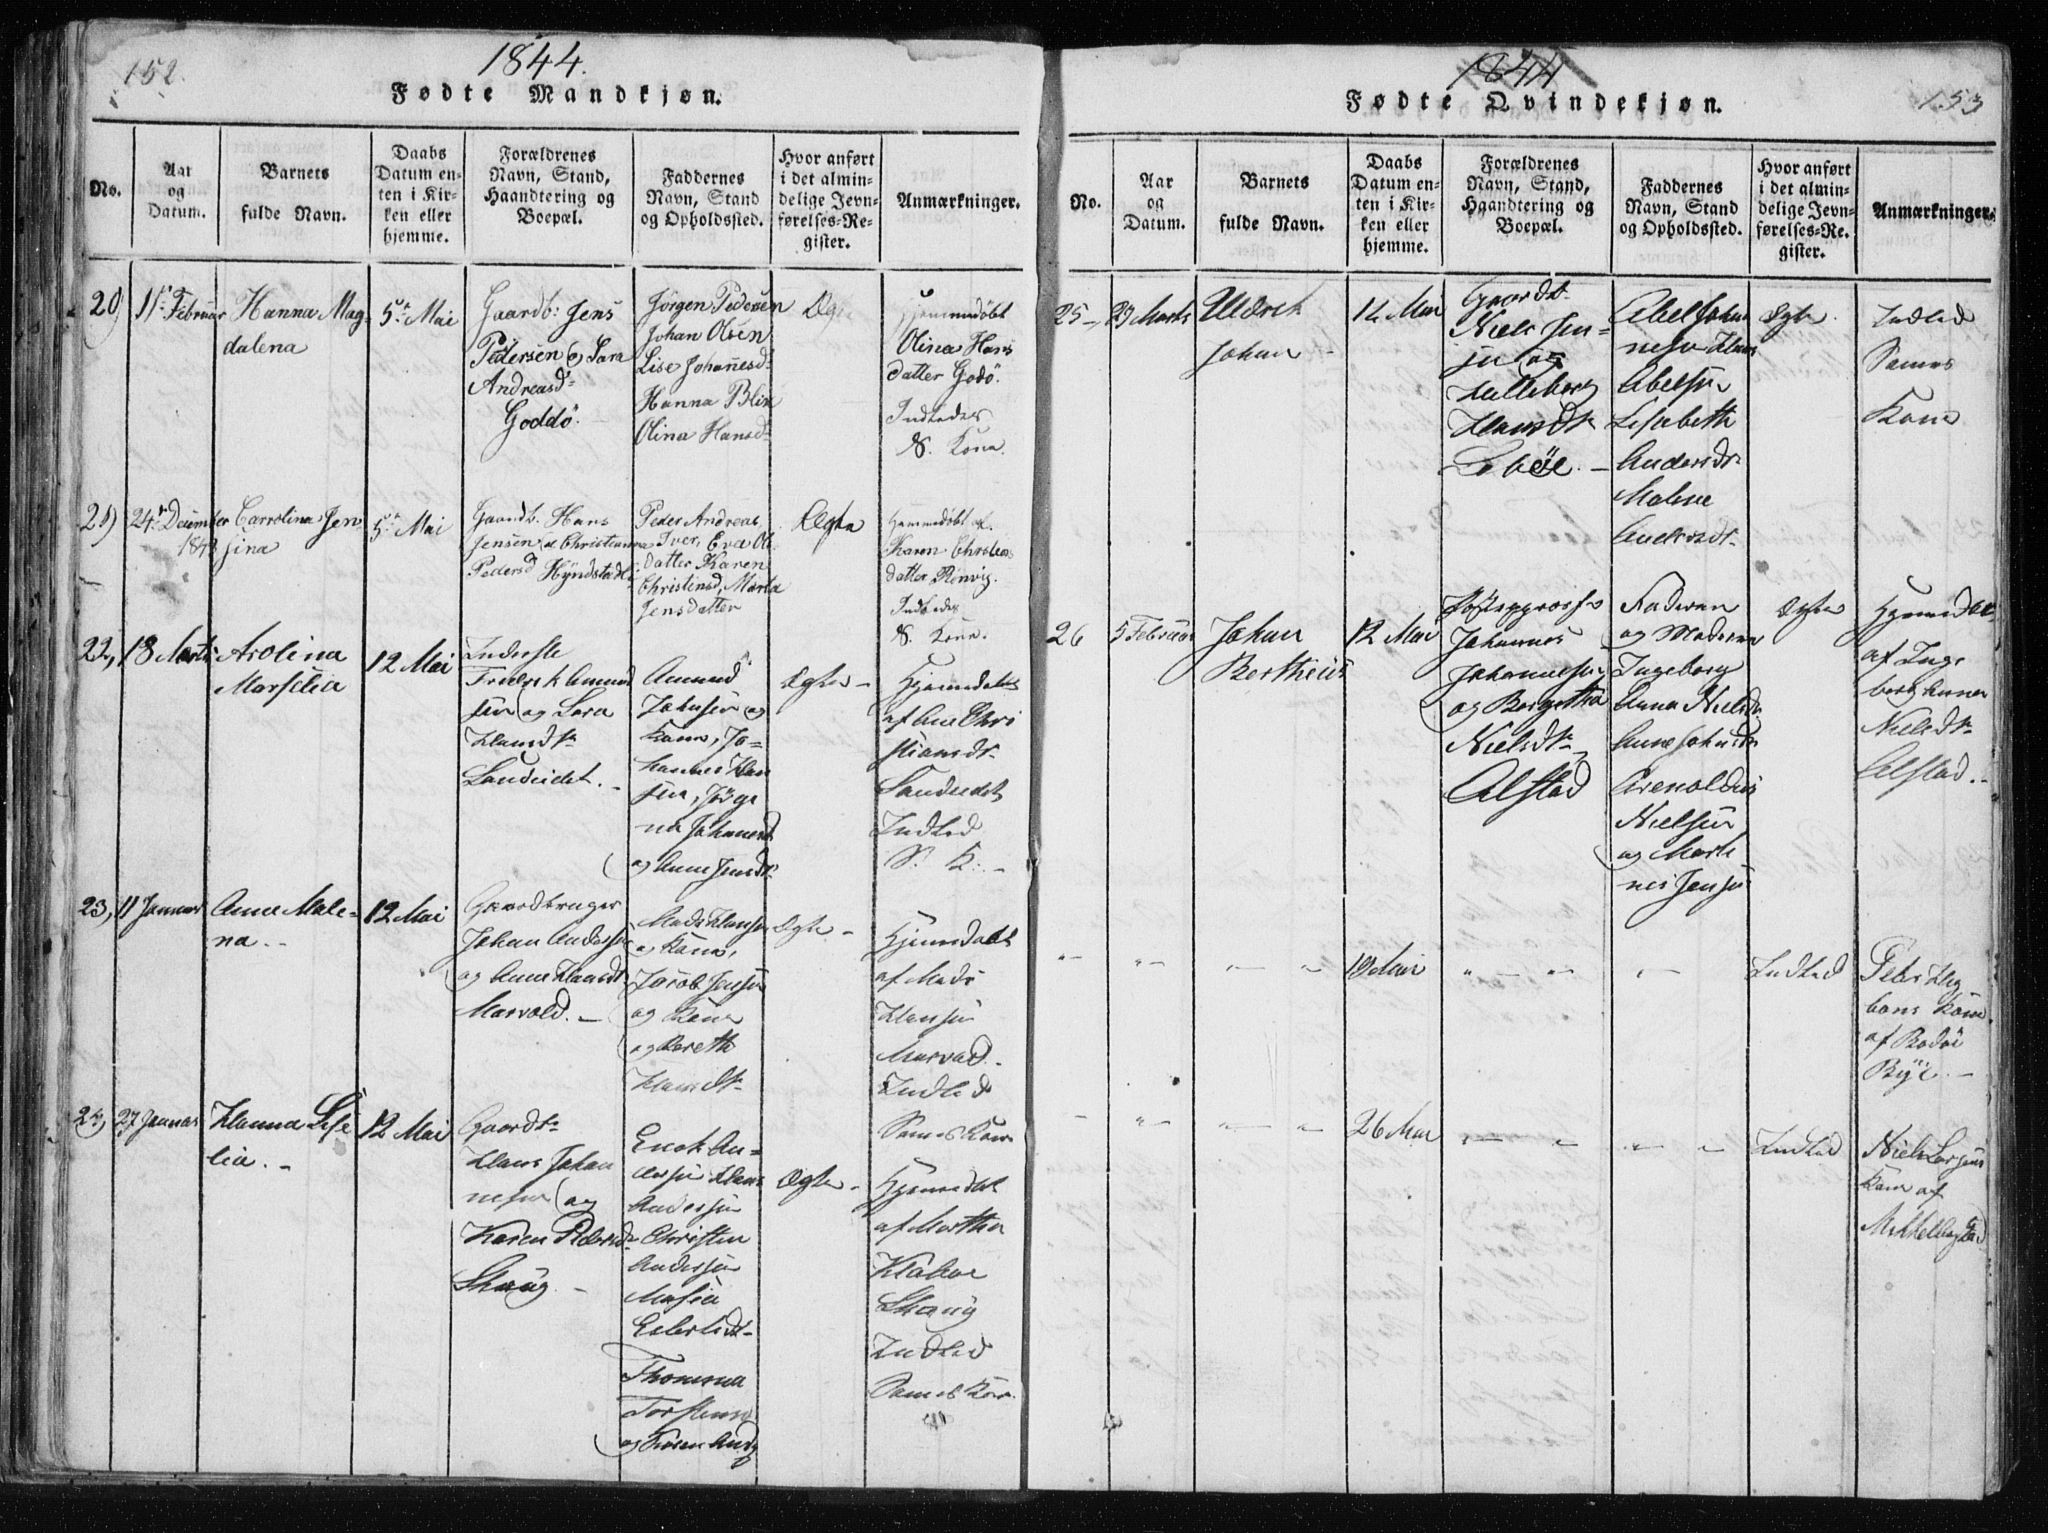 152.
1844.
Fødte Mandkjøn.
No.
Aar
og
Datum.
Barnets
fulde Navn.
Daabs
Datum en-
ten i Kir-
ken eller
hjemme.
Forældrenes
Navn, Stand,
Haandtering og
Boepæl.
Faddernes
Navn, Stand
og Opholdssted.
Hvor anført
i det almin-
delige Jevn-
førelses-Re-
gister.
Anmærkninger.
20)
11te Februar
Hanna Mag-
dalena
5te Mai
Gaardb: Jens
Pedersen og Sara
Andreasd-
Goddö.
Jörgen Pedersen
Johan Olsen
Lise Johanesd-
Hanna Blix
Olina Hansd-
Ægte
Hjemmedöbt
Olina Hans
datter Godö.
Indledes
S. Kone.
21)
24de December
1843
Carrolina Jen-
sina
5te Mai
Gaardb. Hans
Jensen & Christianna
Pedersd
Peder Andreas,
Iver, Eva Ols
datter Karen
Christensd, Marta
Jensdatter
Ægte
Hjemmedöbt af
Karen Christens
datter Rönvig.
Indledes
S. Kone.
22,
18 Marts
Arolina
Marselia
12 Mai
Inderste
Fredrik Amund
sen og Sara
Hansdtr
Sandeidet. -
Amund
Johnsen og
Kone, Jo-
hannes Han
sen, Jörgi
na Johanesd
og Anne Jensdtr
Ægte -
Hjemmedøbt
af Ane Chri
stiansdtr
Sandeidet
Indled
S. K. -
23,
11 Januar
Anne Male-
na. -
12 Mai
Gaardbruger
Johan Andersen
og Anne Hansdt
Marvold. -
Mads Hansen
og Kone,
Jacob Jensen
og Kone
og Bereth
Hansdtr
Ægte -
Hjemmedøbt
af Mads
Hansen
Marvold.
Indled
Sames Kone
24,
27 Januar
Hanna Lise
lia. -
12 Mai
Gaardbr
Hans Johan
nesen og
Karen Pedersd-
Skaug -
Enok An-
dersen Hans
Andersen
Christen
Andersen
Masia
Eilertsdt-
Thomma
Torstensen
Ægte -
Hjemmedøbt
af Martha
Skaug
Indled
Sames Kone.
1844
153
Fødte Qvindekjøn.
No.
Aar
og
Datum.
Barnets
fulde Navn.
Daabs
Datum en-
ten i Kir-
ken eller
hjemme.
Forældrenes
Navn, Stand,
Haandtering og
Boepæl.
Faddernes
Navn, Stand
og Opholdssted.
Hvor anført
i det almin-
delige Jevn-
førelses-Re-
gister.
Anmærkninger.
25 -
27 Marts
Uldrik
Johan -
12 Mai
Gaardbr
Niels Jen-
sen og
Helleborg
Hansdtr
Abel Johan
nesen Hans
Abelsen
Lisabeth
Andersdtr
Malene
Andersdtr
Ægte.
Indled
Sames
Kone
26
5 Februar
Johan
Bertheus
12 Mai
Johannes
Johannesen
og Bergitha
Nielsdtr
Alstad
Faderen
og Moderen
Ingeborg
Anna Nielsdtr
Anne Johnsdtr
Arenoldus
Nielsen
og Marti
nes Jensen
Ægte
Hjemmedøbt
af Inge
borg Anna
Nielsdtr
Alstad. -
19 Mai
Indled
Peter
Kone
af Bodöe
Bye. -
26 Mai
Indled
Niels Larsens
Kone af